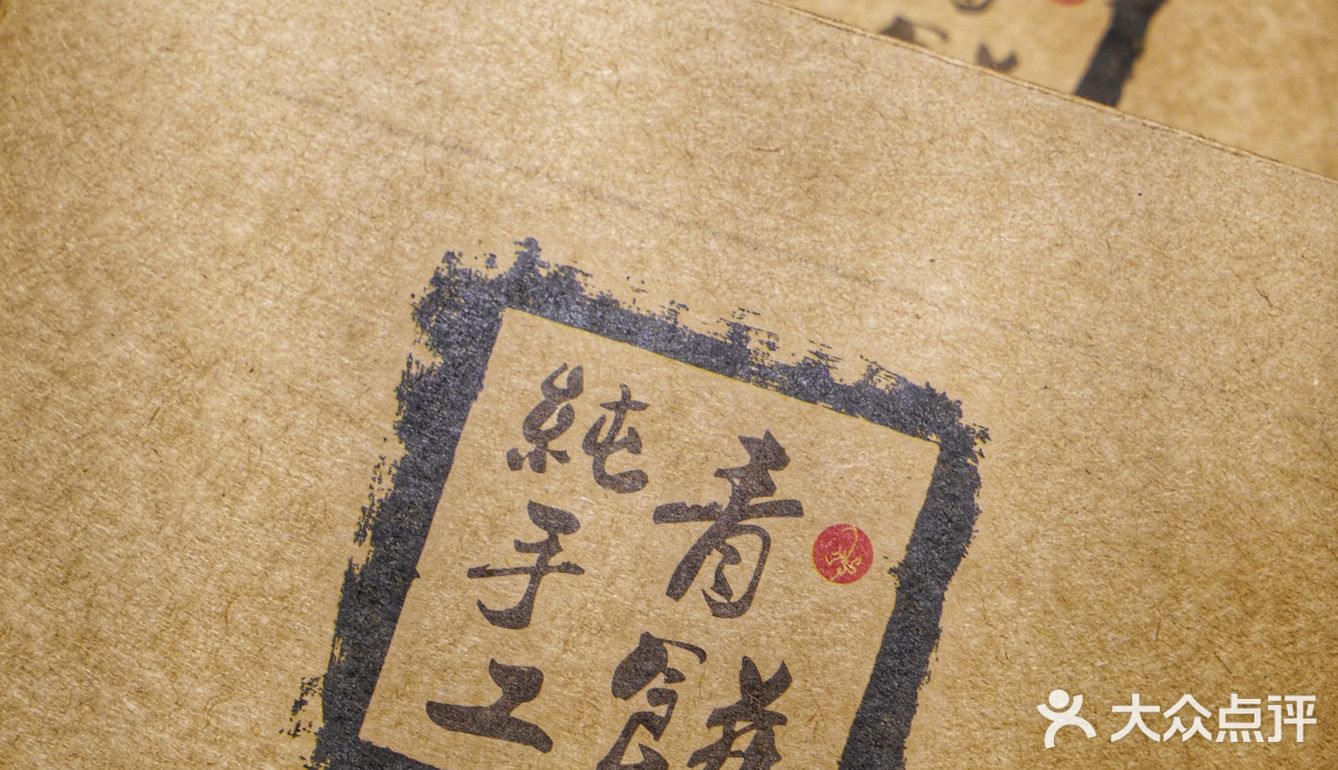 青餅
純手工
大众点评